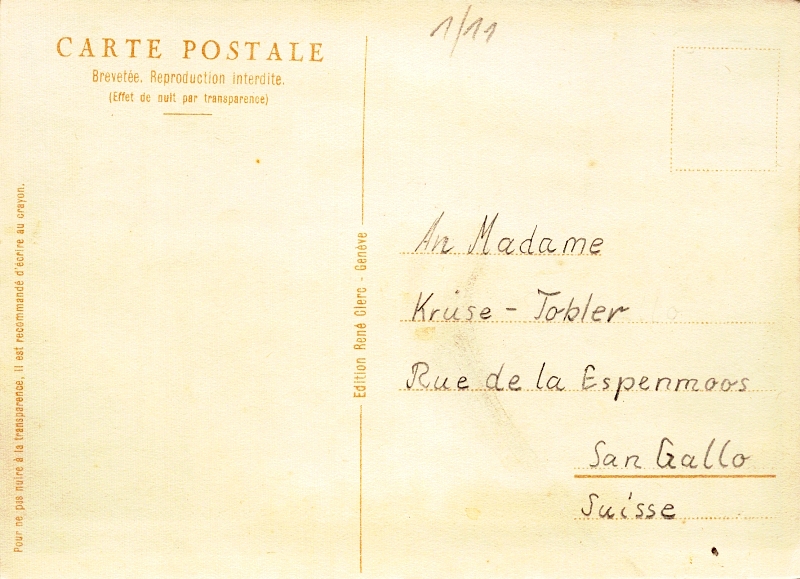 CARTE POSTALE
Brevetée. Reproduction interdite.
(Effet de nuit par transparence)
1/11
Pour ne pas nuire à la transparence, il est recommandé d'écrire au crayon.
Edition René Clerc - Genève
An Madame
Krüse - Tobler
Rue de la Espenmoos
San Gallo
Suisse